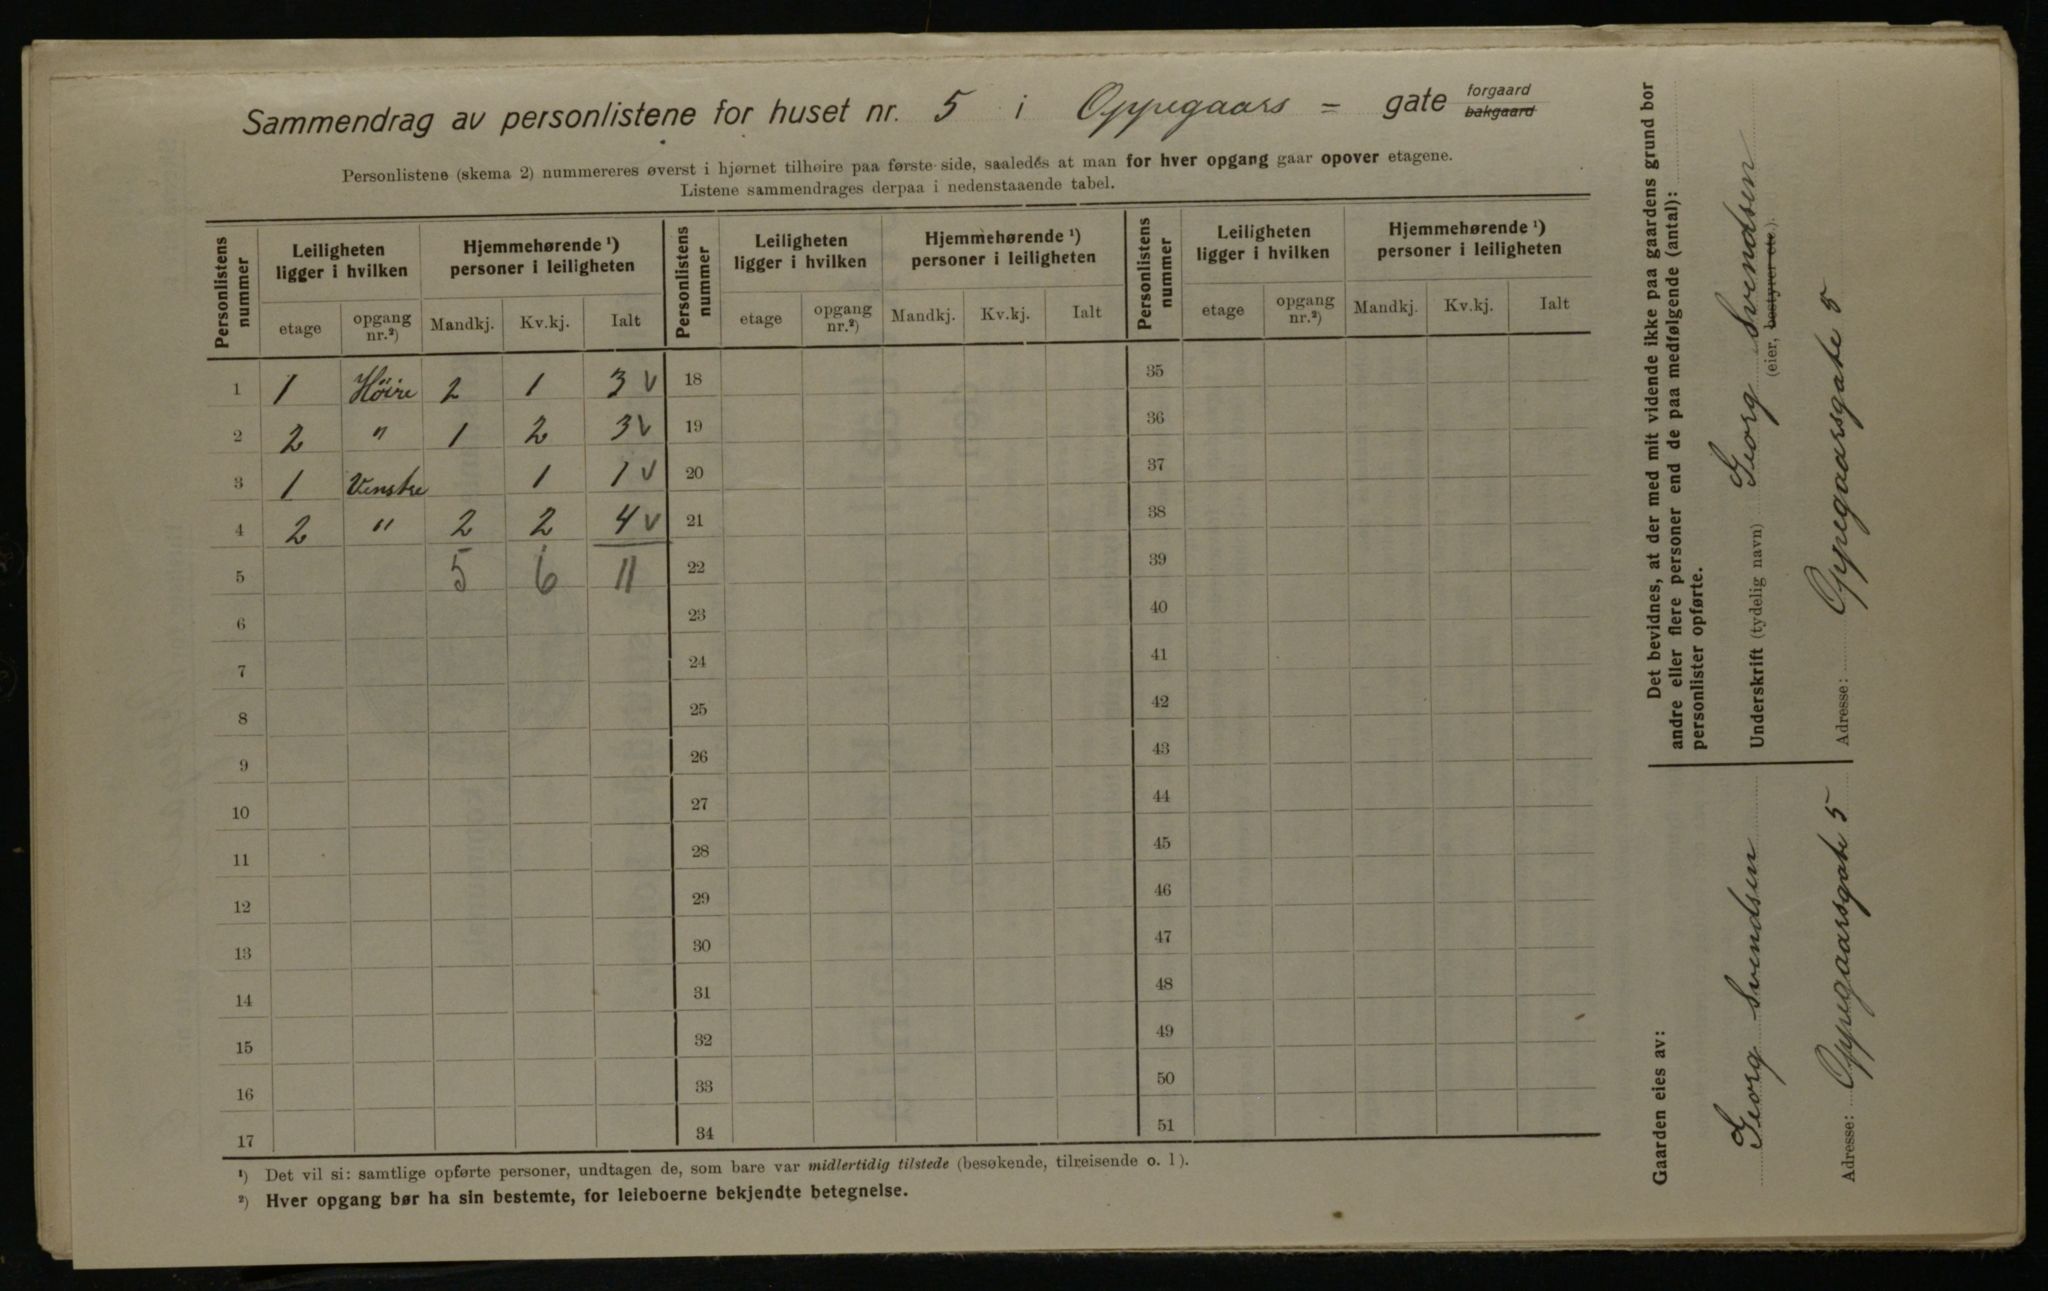 Sammendrag av personlistene for huset nr. 5 i Oppegaars - gate forgaard bakgaard
Personlistene (skema 2) nummereres øverst i hjørnet tilhøire paa første side, saaledes at man for hver opgang gaar opover etagene.
Listene sammendrages derpaa i nedenstaaende tabel.
Personlistens nummer | Leiligheten ligger i hvilken | Hjemmehørende ¹) personer i leiligheten | Personlistens nummer | Leiligheten ligger i hvilken | Hjemmehørende ¹) personer i leiligheten | Personlistens nummer | Leiligheten ligger i hvilken | Hjemmehørende ¹) personer i leiligheten
etage | opgang nr.²) | Mandkj. | Kv.kj. | Ialt | etage | opgang nr.²) | Mandkj. | Kv.kj. | Ialt | etage | opgang nr.²) | Mandkj. | Kv.kj. | Ialt
1 | 1 | Høire | 2 | 1 | 3 v | 18 | 35
2 | 2 | " | 1 | 2 | 3 v | 19 | 36
3 | 1 | Venstre | | 1 | 1 v | 20 | 37
4 | 2 | " | 2 | 2 | 4 v | 21 | 38
5 | | | 5 | 6 | 11 | 22 | 39
6 | 23 | 40
7 | 24 | 41
8 | 25 | 42
9 | 26 | 43
10 | 27 | 44
11 | 28 | 45
12 | 29 | 46
13 | 30 | 47
14 | 31 | 48
15 | 32 | 49
16 | 33 | 50
17 | 34 | 51
¹) Det vil si: samtlige opførte personer, undtagen de, som bare var midlertidig tilstede (besøkende, tilreisende o. l).
²) Hver opgang bør ha sin bestemte, for leieboerne bekjendte betegnelse.
Det bevidnes, at der med mit vidende ikke paa gaardens grund bor
andre eller flere personer end de paa medfølgende (antal):
personlister opførte.
Underskrift (tydelig navn) Georg Svendsen
(eier, bestyrer etc.).
Adresse: Oppegaarsgate 5
Gaarden eies av:
Georg Svendsen
Adresse: Oppegaarsgate 5